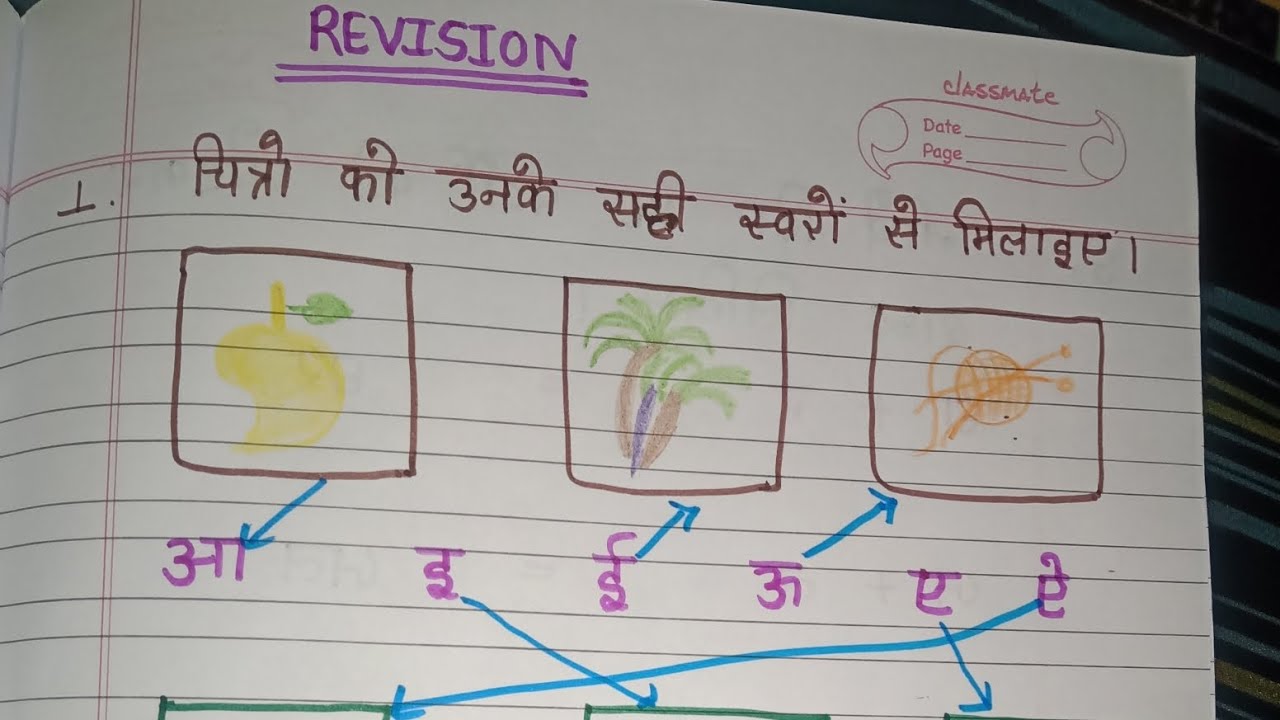 REVISION
classmate
Date
Page
1. चित्रो को उनके सही स्वरों से मिलाइए।
आ इ ई ऊ ए ऐ